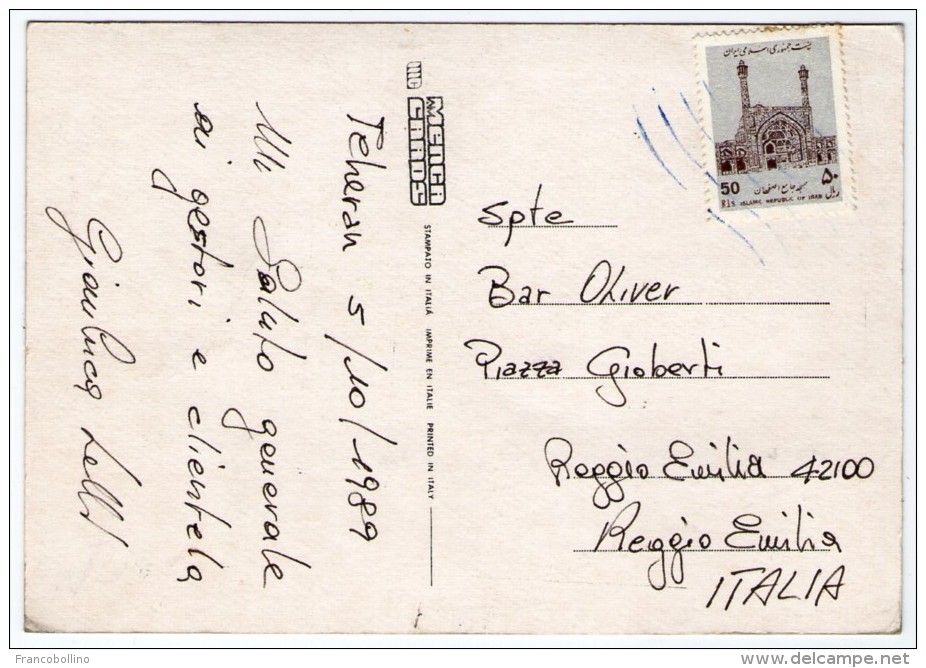 Teheran 5/10/1989
Un saluto generale
ai gestori e clientela
Gianluca
MEMCA
CARDS
STAMPATO IN ITALIA IMPRIME EN ITALIE PRINTED IN ITALY
پست جمهوری اسلامی ایران
مسجد جامع اصفهان
50
Rls
۵۰
ریال
ISLAMIC REPUBLIC OF IRAN
Spte
Bar Oliver
Piazza Gioberti
Reggio Emilia 42100
Reggio Emilia
ITALIA
Francobollino
www.delcampe.net